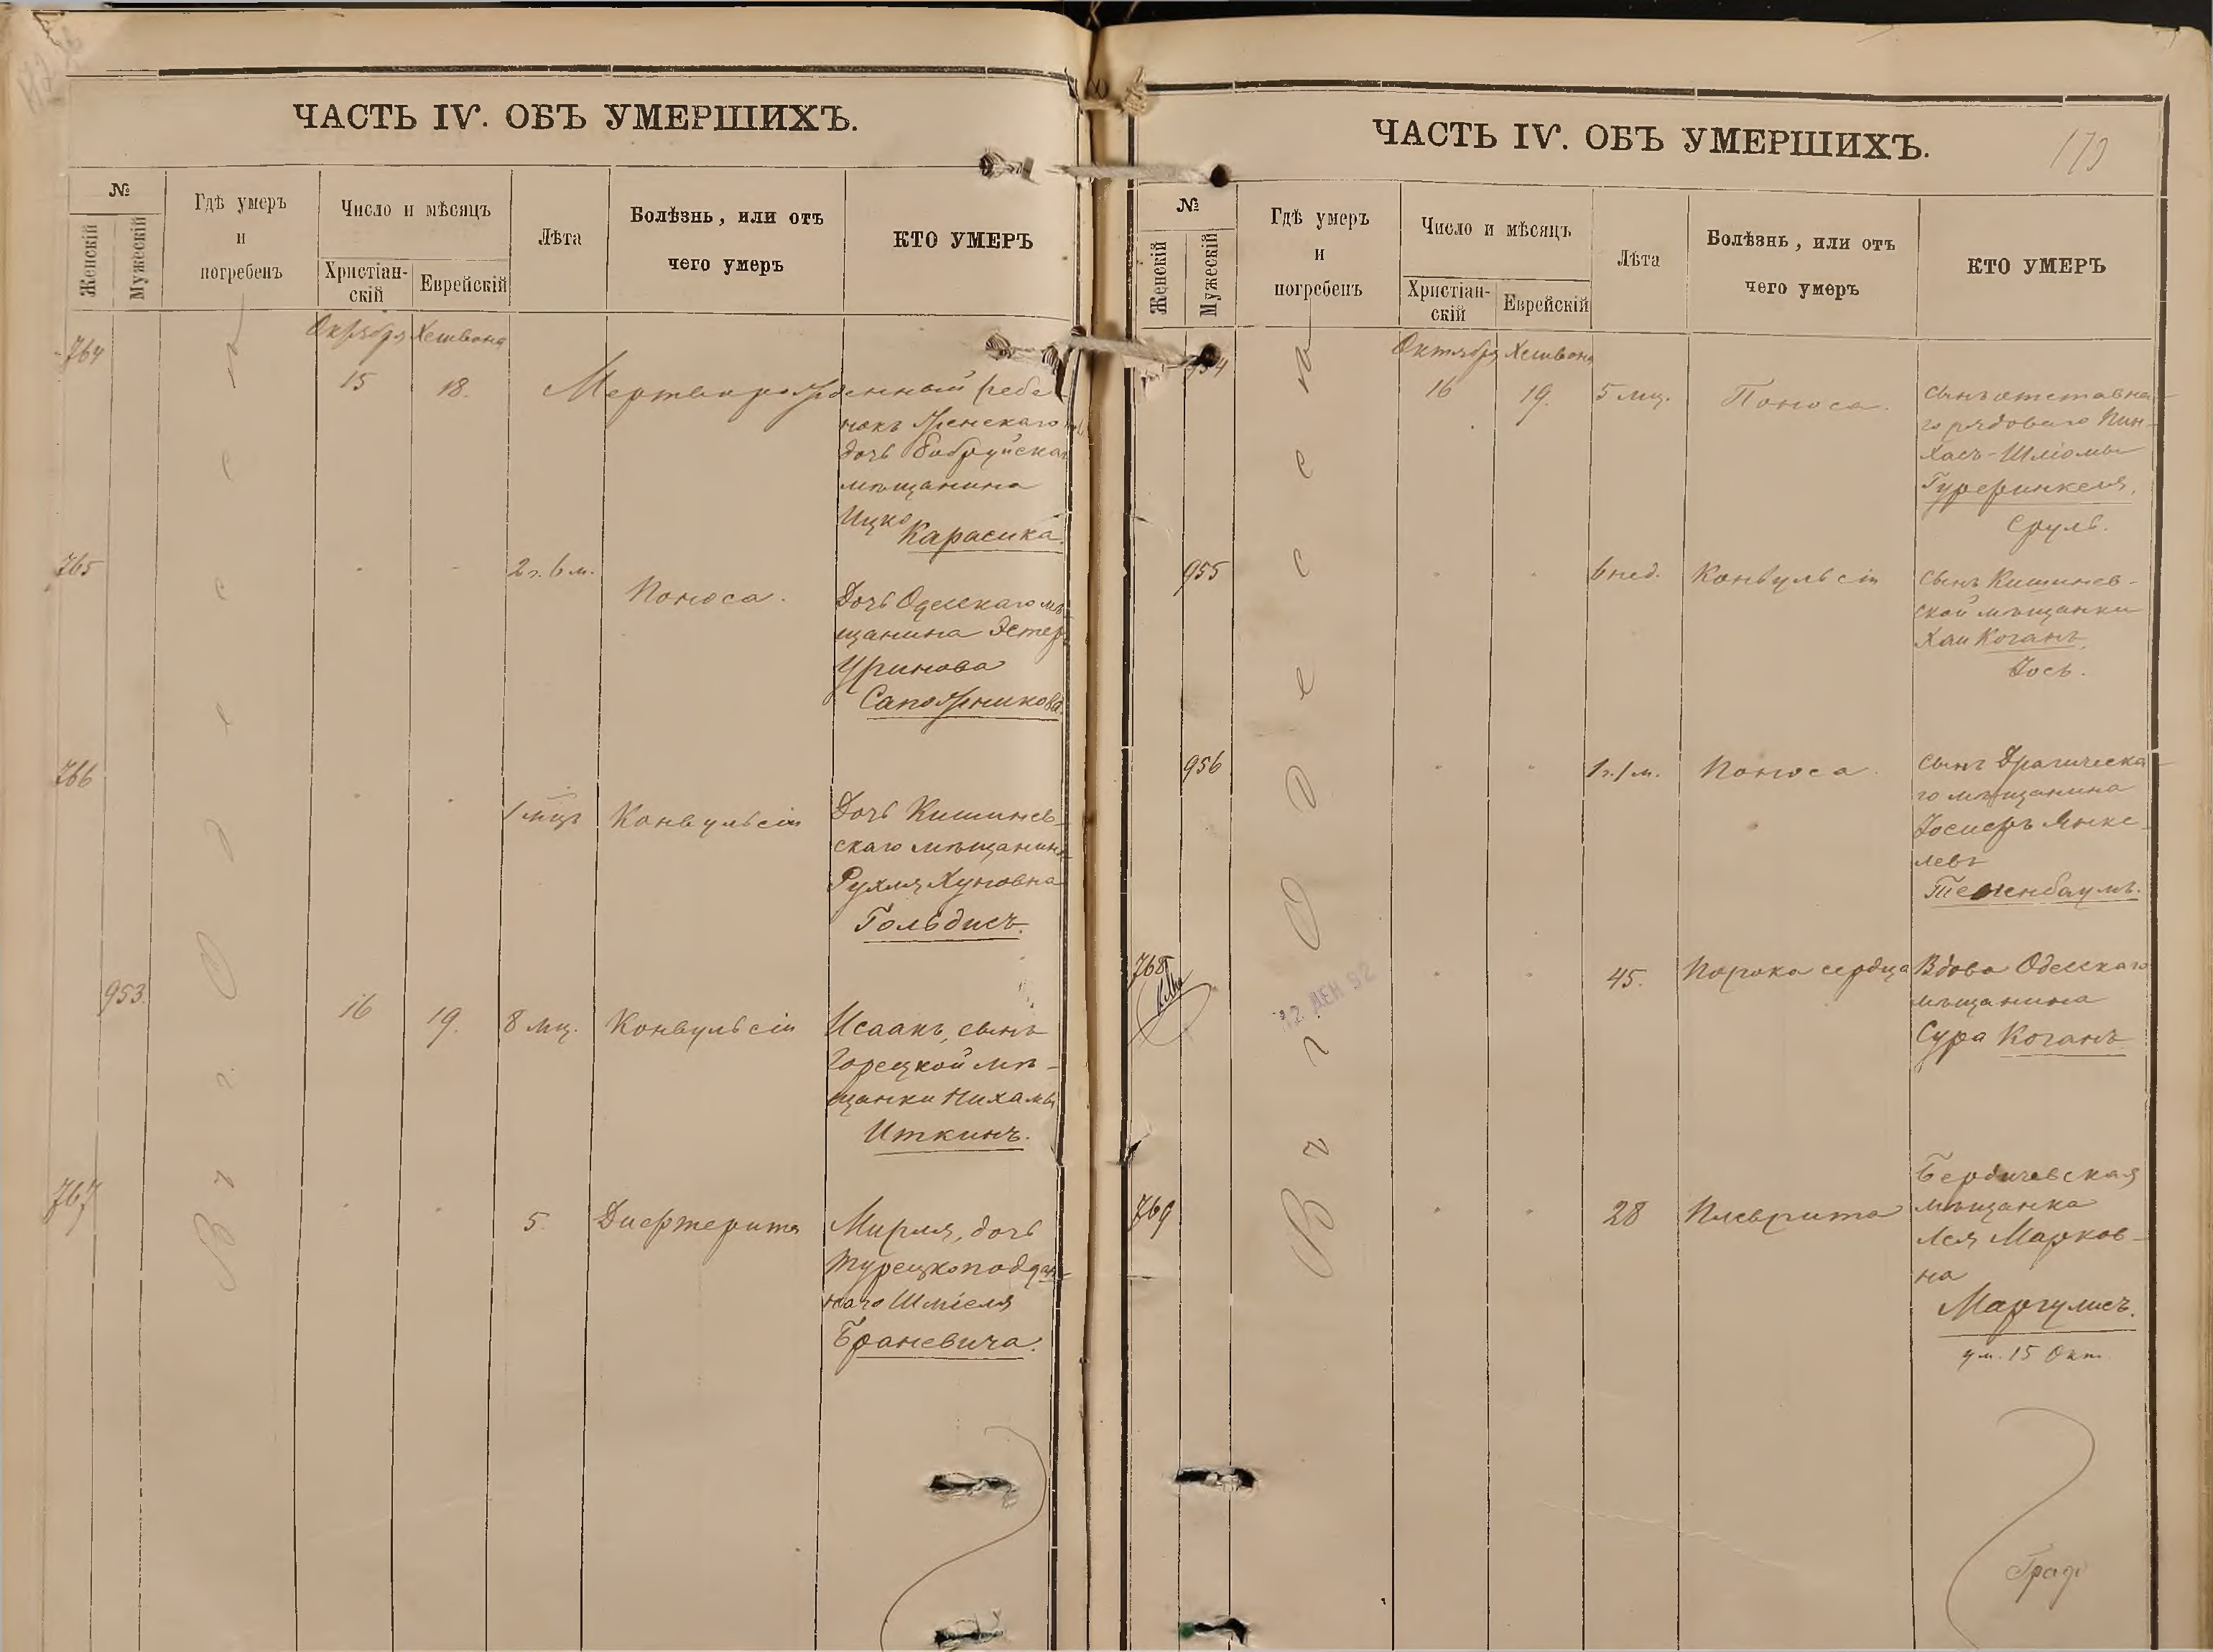 ЧАСТЬ IV. ОБЪ УМЕРШИХЪ.
№
Женскій
Мужескій
Гдѣ умеръ
и
погребенъ
Число и мѣсяцъ
Христіан-
скій
Еврейскій
Лѣта
Болѣзнь, или отъ
чего умеръ
КТО УМЕРЪ
Въ г. Одесса
Октября Хешвона
764
15 18. Мертворожденный ребе-
нокъ Женскаго
дочь Бобруйскаго
мѣщанина
Ицко Карасика.
765 2 г. 6 м. Поноса. Дочь Одесскаго мѣ-
щанина Эстеръ
Уринова
Сапожникова.
766 1 мцъ Конвульсіи Дочь Кишинев-
скаго мѣщанина
Рухля Хуновна
Гольдисъ.
953. 16 19. 8 мц. Конвульсіи Исаакъ, сынъ
Горецкой мѣ-
щанки Нихамы
Иткинъ.
767 5. Дифтерита Мирля, дочь
турецкоподдан-
наго Шміеля
Браневича.
ЧАСТЬ IV. ОБЪ УМЕРШИХЪ.
173
№
Женскій
Мужескій
Гдѣ умеръ
и
погребенъ
Число и мѣсяцъ
Христіан-
скій
Еврейскій
Лѣта
Болѣзнь, или отъ
чего умеръ
КТО УМЕРЪ
Въ г. Одесса
Октября Хешвона
954 16 19. 5 мц. Поноса. Сынъ отставна-
го рядоваго Пин-
хасъ-Шліомы
Гурфинкеля,
Сруль.
955 6 нед. Конвульсіи Сынъ Кишинев-
ской мѣщанки
Хаи Коганъ,
Іосъ.
956 1 г. 1 м. Поноса. Сынъ
го мѣщанина
Іосифъ Янке-
левъ
Тененбаумъ.
768 45. Порока сердца Вдова Одесскаго
мѣщанина
Сура Коганъ
12 ДЕН 92
769 28 Плеврита Бердичевская
мѣщанка
Лея Марков-
на
Маргулисъ.
ум. 15 Окт.